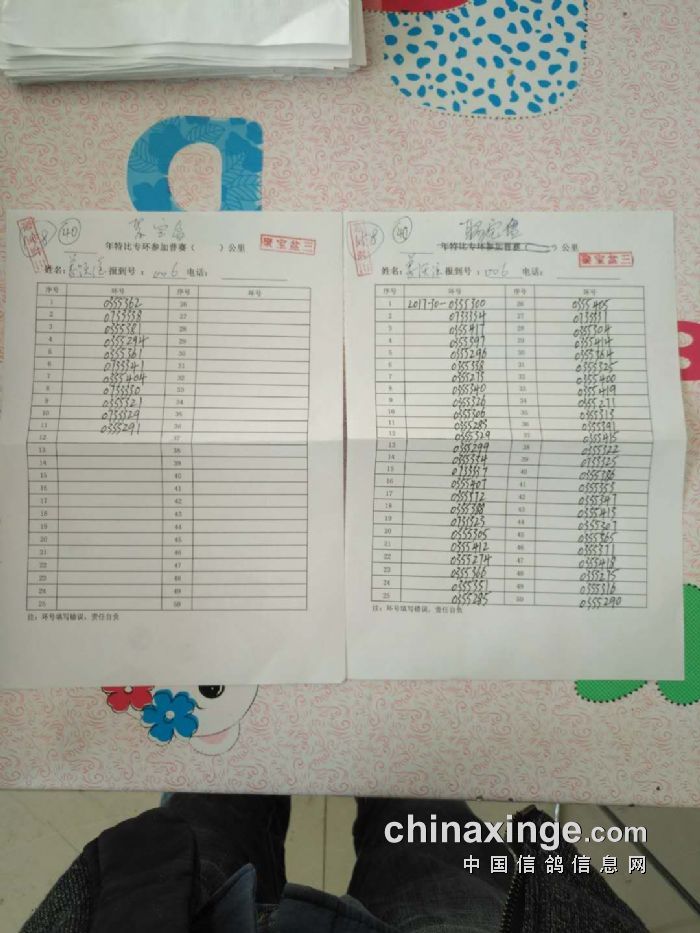 40
年特比专环参加普赛（ ）公里
三盆宝聚
姓名： 报到号：006 电话：
序号 环号 序号 环号
1 0355362 26
2 0733338 27
3 0355381 28
4 0355294 29
5 0355361 30
6 0733341 31
7 0355404 32
8 0733330 33
9 0355321 34
10 0733329 35
11 0355291 36
12 37
13 38
14 39
15 40
16 41
17 42
18 43
19 44
20 45
21 46
22 47
23 48
24 49
25 50
注：环号填写错误，责任自负
40
年特比专环参加普赛（ ）公里
三盆宝聚
姓名： 报到号：006 电话：
序号 环号 序号 环号
1 2017-30-0355300 26 0355405
2 0733334 27 0733331
3 0355417 28 0355304
4 0355397 29 0355414
5 0355296 30 0355364
6 0355338 31 0355325
7 0355273 32 0355400
8 0355340 33 0355419
9 0355326 34 0355271
10 0355306 35 0355313
11 0355283 36 0355391
12 0355329 37 0355415
13 0355299 38 0355322
14 0355334 39 0733325
15 0733337 40 0355386
16 0355407 41 0355353
17 0355372 42 0355347
18 0355388 43 0355413
19 0733323 44 0355307
20 0355305 45 0355365
21 0355412 46 0355371
22 0355274 47 0355418
23 0355366 48 0355275
24 0355351 49 0355316
25 0355285 50 0355290
注：环号填写错误，责任自负
chinaxinge.com
中国信鸽信息网